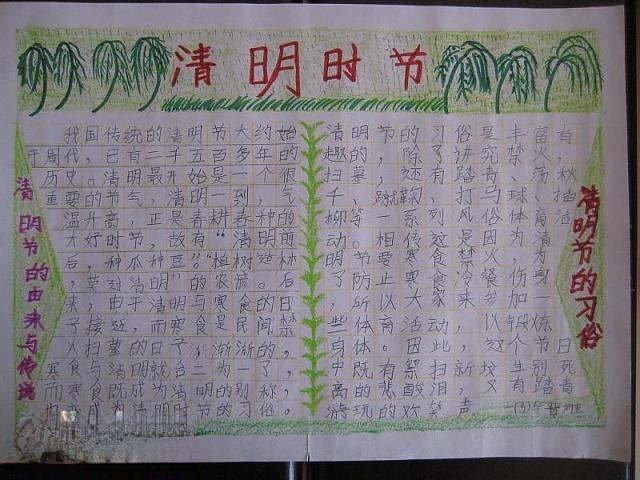 清明时节
清明节的由来与传说
我国传统的清明节大约始
于周代，已有二千五百多年的
历史。清明最开始是一个很
重要的节气，清明一到，气
温升高，正是春耕春种的
大好时节，故有“清明前
后，种瓜种豆”。“植树造林
，莫过清明”的农谚。后
来，由于清明与寒食的日
子接近，而寒食是民间禁
火扫墓的日子，渐渐的，
寒食与清明就合二为一了，
而寒食既成为清明的别称，
也变成为清明时节的习俗。
清明节的习俗是丰富有
趣的，除了讲究禁火，
扫墓，还有踏青、荡秋
千、蹴鞠、打马球、插
柳等一系列风俗体育活
动。相传这是因为，清
明节要寒食禁火，为
了防止寒食冷餐伤身
，所以大家来参加一
些体育活动，以锻炼
身体。因此，这个节日
中既有祭扫新坟生别死
离的悲酸泪，又有踏青
游玩的欢笑声
清明节的习俗